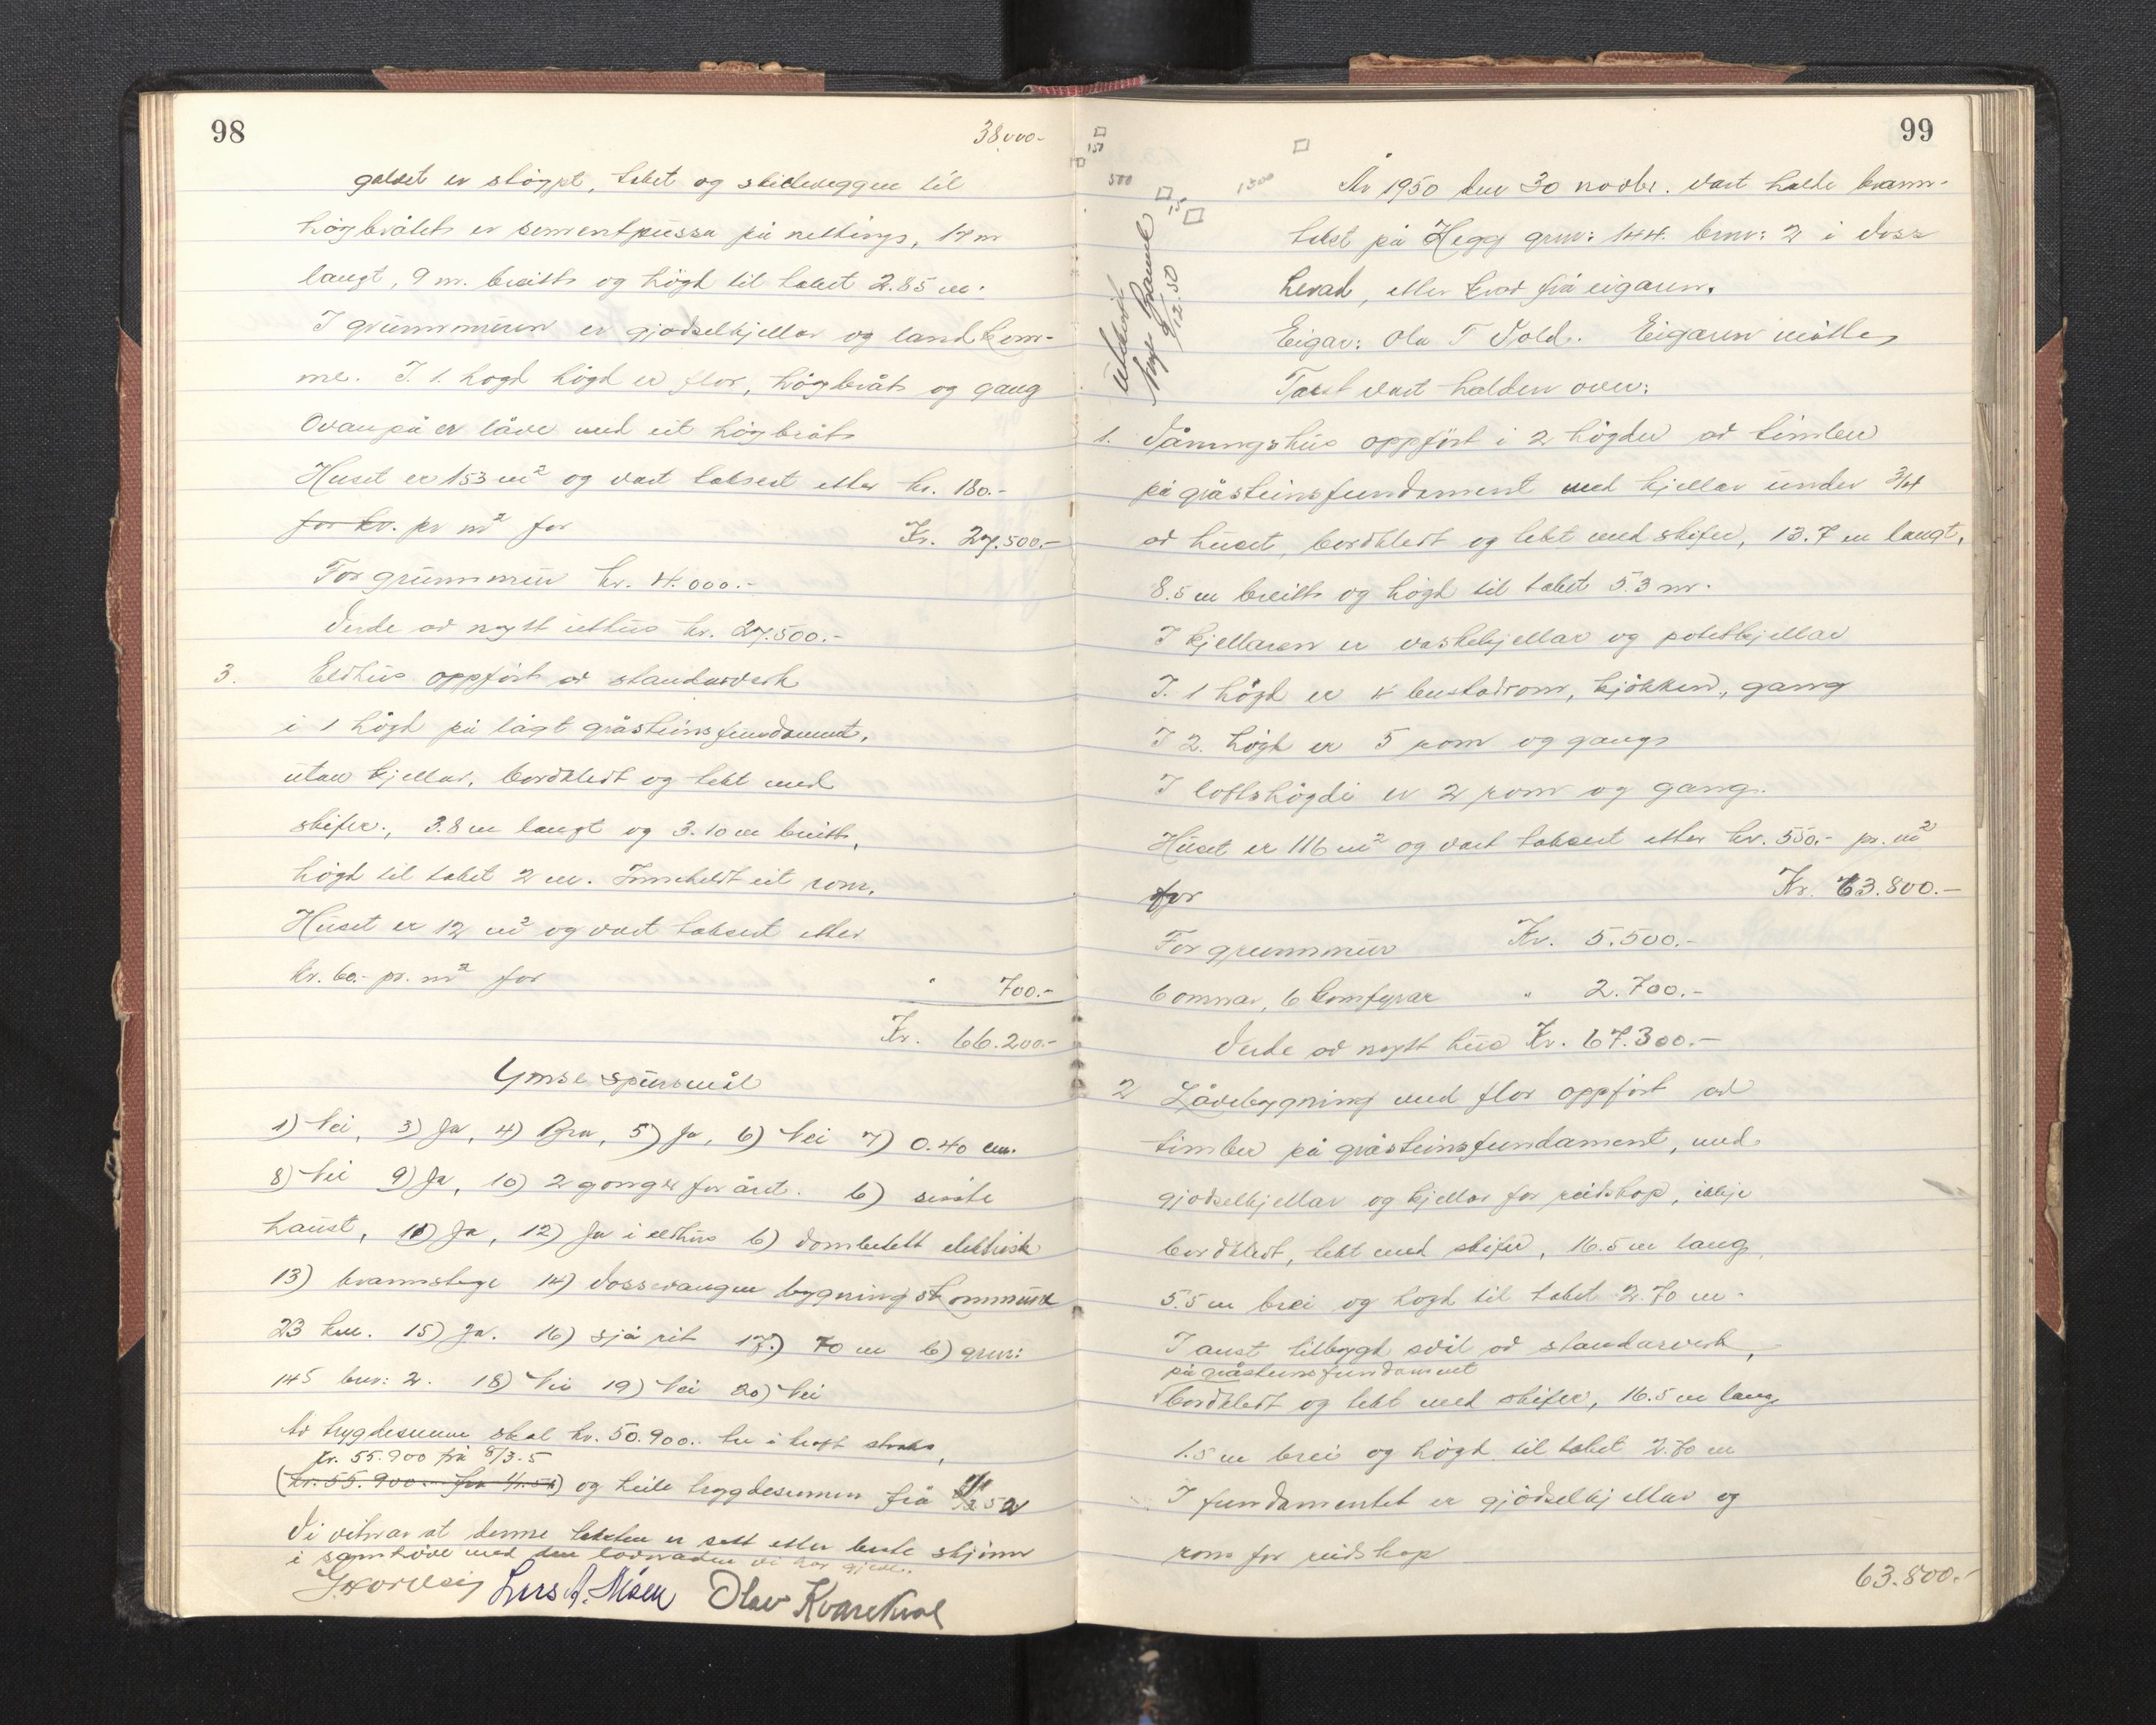 98
38000-
golvet er støypt, taket og skilleveggen til
høybrålet er sementpussa på netting, 17 m
langt, 9 m. breitt og högd til taket 2.85 m.
I grunnmuren er gjødselkjellar og landkom-
me. I 1. hogd högd er flor, höybråt og gang
Ovanpå er låve med eit höybråt
Huset er 153 m² og vart taksert etter kr. 180.-
for kr. pr m² for Kr. 27.500.-
For grunnmur kr. 4.000.-
Verde av nytt uthus kr. 27.500.-
3. Eldhus oppfört av standarverk
i 1 högd på lågt gråsteinsfundament,
utan kjellar, bordkledt og tekt med
skifer, 3.8 m langt og 3.10 m breitt,
högd til taket 2 m. Inneheldt eit rom.
Huset er 12 m² og vart taksert etter
kr. 60.- pr. m² for " 700.-
Kr. 66.200.-
Ymse spursmål
1) Nei, 3) Ja, 4) Bra, 5) Ja, 6) Nei 7) 0.40 cm.
8) Nei 9) Ja, 10) 2 gonger for året. b) siste
haust, 11) Ja, 12) Ja i eldhus b) dombelett elektrisk
13) brannstege 14) Vossevangen bygningskommune
23 km. 15) Ja. 16) sjå rit 17) 70 m b) grnr:
145 bnr: 2. 18) Nei 19) Nei 20) Nei
Av trygdesumm skal kr. 50.900.- tre i kraft straks,
kr. 55.900 frå 8/3.5
(kr. 55.900.- frå 1/1.51) og heile trygdesummen frå 1/1 52
Vi vitnar at denne taksten er sett etter beste skjönn
i samhöve med den lovnaden vi har gjeve.
Lars A. Móen Olav Kvarekval
99
150
500
15
1500
Utskrift
12.50
År 1950 den 30 novbr. vart halde brann-
takst på Hegg grnr: 144. bnr: 2 i Voss
herad, etter krav frå eigaren.
Eigar: Ola T Vold. Eigaren møtte
Takst vart halden over:
1. Våningshus oppfört i 2 högder av timber
på gråsteinsfundament med kjellar under 3/4
av huset, bordkledt og tekt med skifer, 13.7 m langt,
8.5 m breitt og högd til taket 5.3 m.
I kjellaren er vaskekjellar og potetkjellar
I. 1 högd er 4 bustadrom, kjökken, gang
I 2. högd er 5 rom og gang
I loftshögdi er 2 rom og gang.
Huset er 116 m² og vart taksert etter kr. 550.- pr. m²
for Kr. 63.800.-
For grunnmur Kr. 5.500.-
6 omnar, 6 komfyrar " 2.700.-
Verde av nytt hus Kr. 67.300.-
2 Låvebygning med flor oppfört av
timber på gråsteinsfundament, med
gjødselkjellar og kjellar for reidskap, ikkje
bordkledt, tekt med skifer, 16.5 m lang,
5.5 m brei og högd til taket 2.70 m.
I aust tilbygd sval av standarverk,
på gråsteinsfundament
bordkledt og tekt med skifer, 16.5 m lang
1.5 m brei og högd til taket 2.70 m
I fundamentet er gjödselkjellar og
rom for reidskap
63.800.-